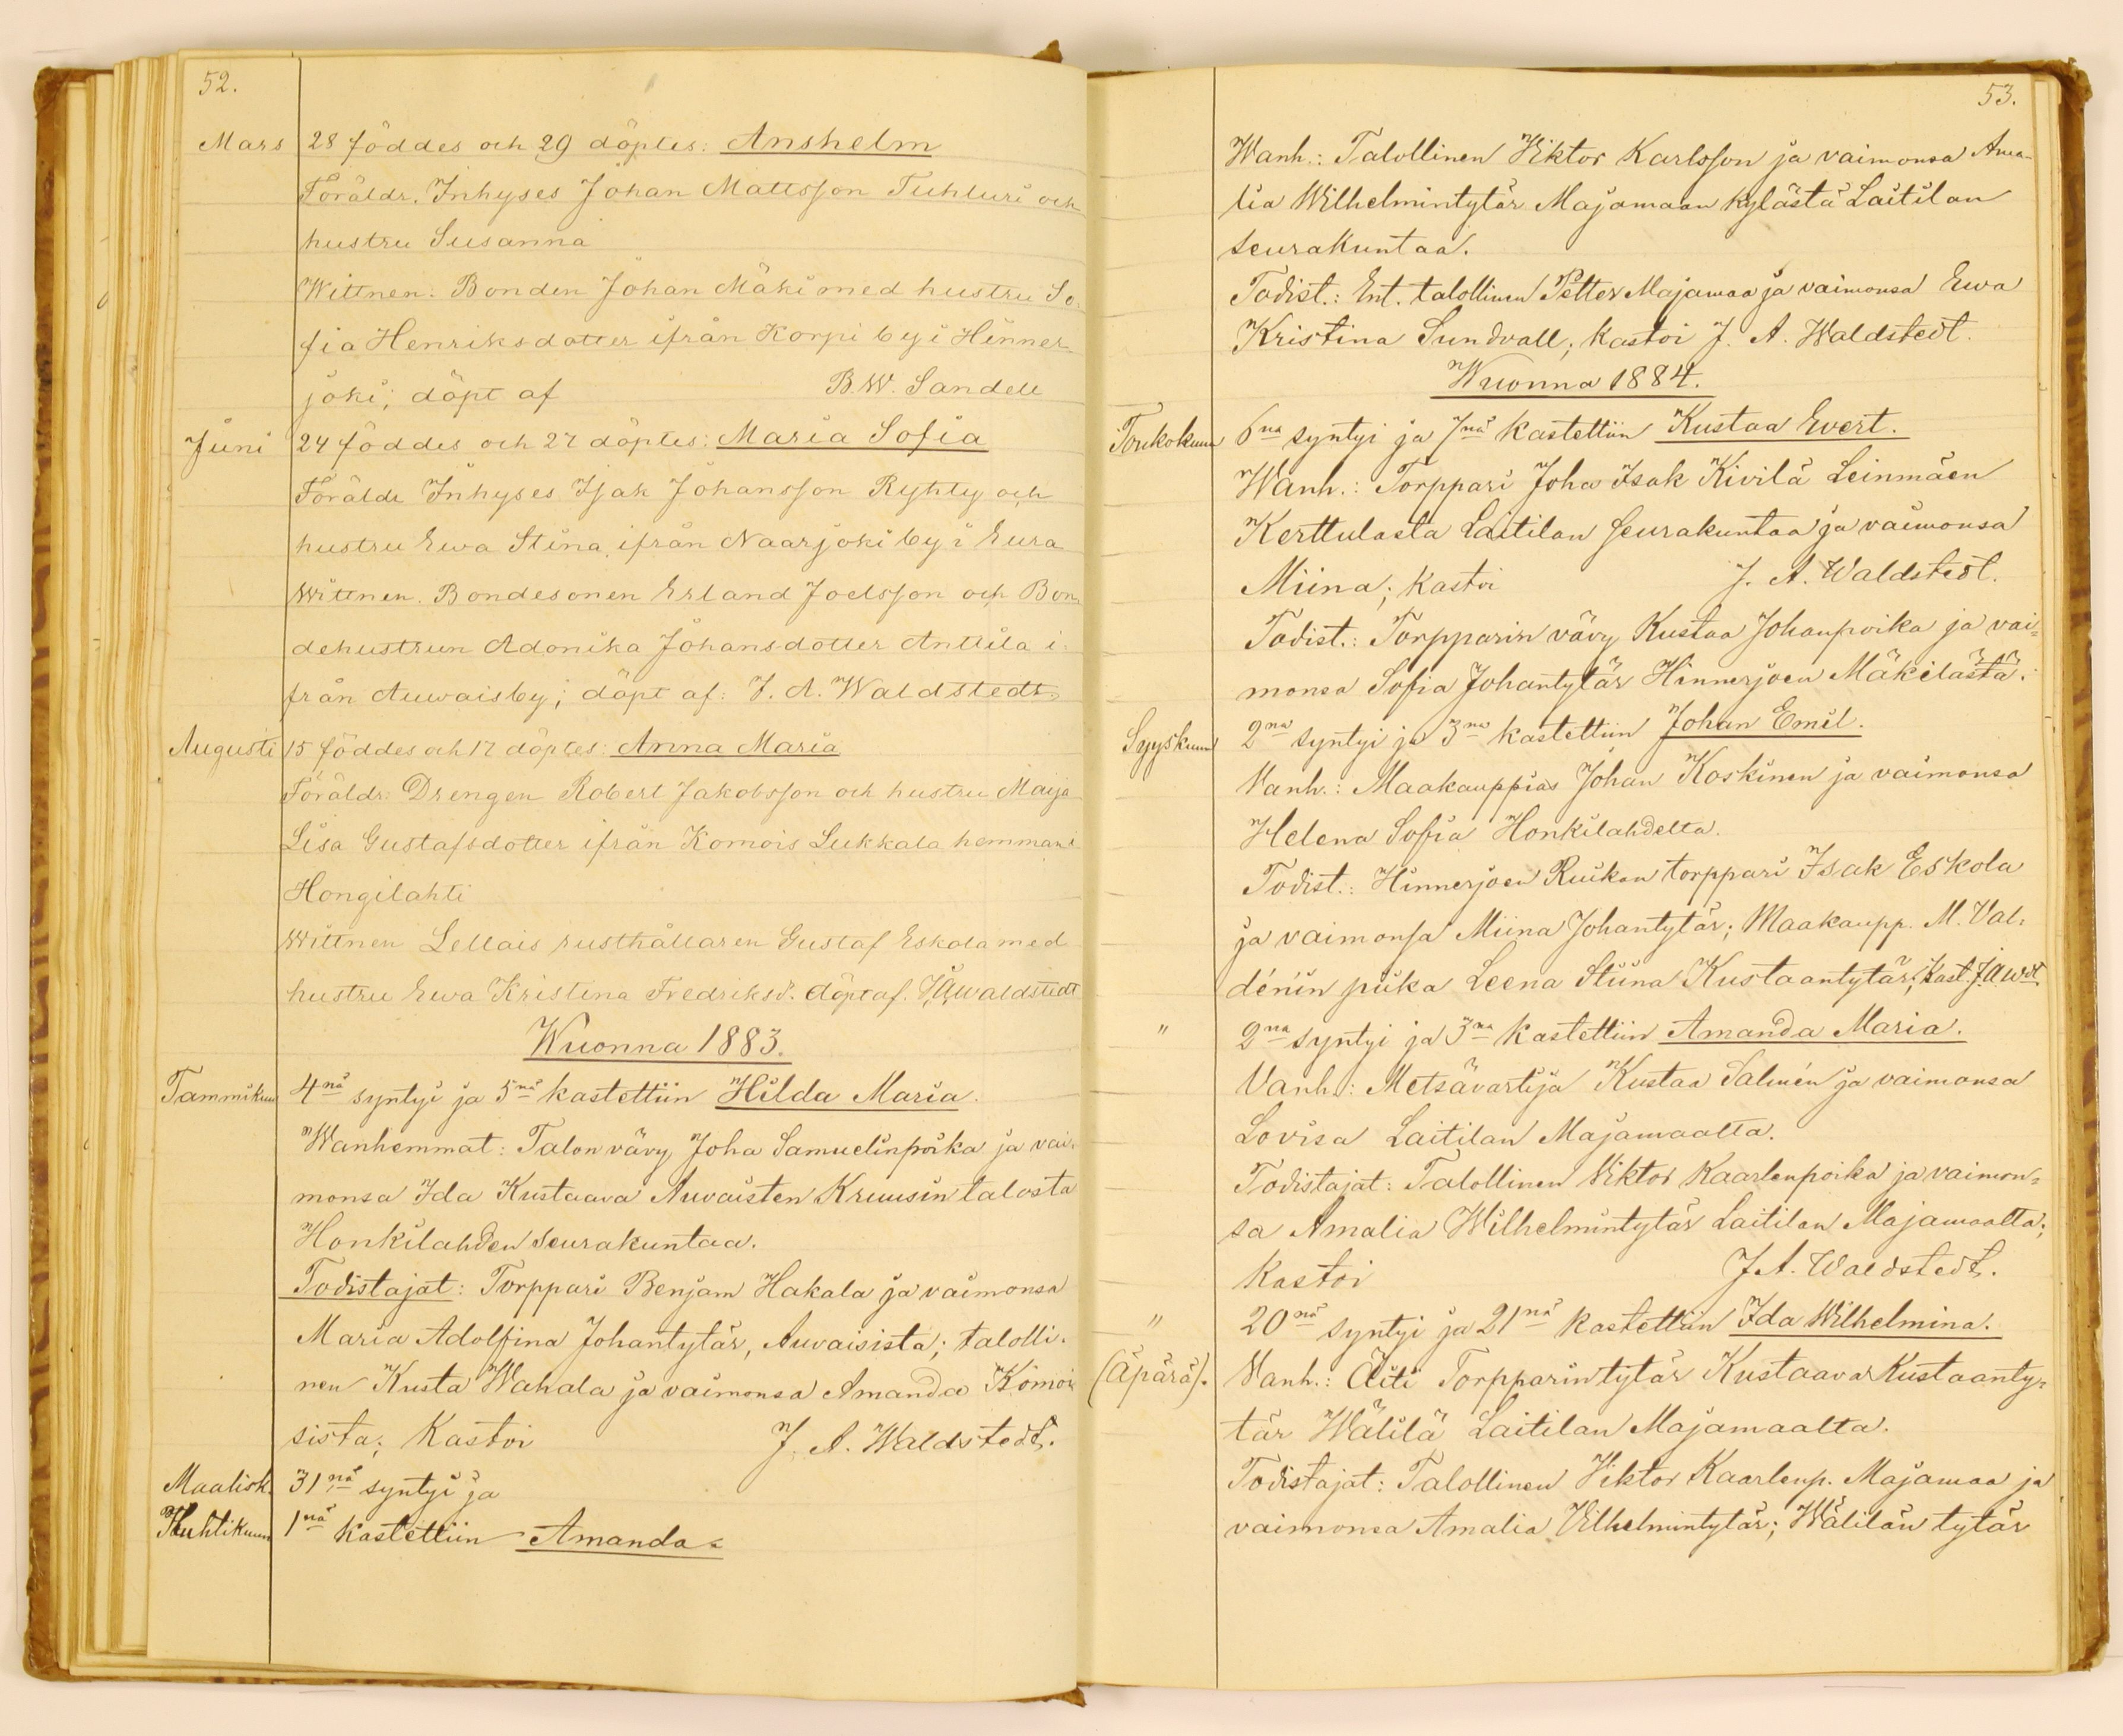 52.
Mars 28 föddes och 29 döptes: Anshelm
Föräldr. Inhyses Johan Mattsson Tuhluri och
hustru Susanna
Wittnen. Bonden Johan Mäki med hustru So-
fia Henriksdotter ifrån Korpi by i Hinner-
joki; döpt af B.W. Sandell
Juni 24 föddes och 27 döptes: Maria Sofia
Föräldr Inhyses Isak Johansson Ryhty och
hustru Ewa Stina, ifrån Naarjoki by i Eura
Wittnen. Bondesonen Erland Joelsson och Bon-
dehustrun Adonika Johansdotter Anttila i-
från Auwais by; döpt af: J. A. Waldstedt
Augusti 15 föddes och 17 döptes: Anna Maria
Föräldr: Drengen Robert Jakobsson och hustru Maija
Lisa Gustafsdotter ifrån Komois Sukkala hemman i
Hongilahti
Wittnen Lellais rusthållaren Gustaf Eskola med
hustru Ewa Kristina Fredriksd. döpt af. J.A. Waldstedt
Wuonna 1883.
Tammikuu 4nä syntyi ja 5nä kastettiin Hilda Maria.
Wanhemmat: Talon vävy Joha Samuelinpoika ja vai-
monsa Ida Kustaava Auvaisten Kruusin talosta
Honkilahden seurakuntaa.
Todistajat: Torppari Benjam Hakala ja vaimonsa
Maria Adolfina Johantytär, Auvaisista; talolli-
nen Kusta Wahala ja vaimonsa Amanda Komoi-
sista; Kastoi J. A. Waldstedt.
Maalisk. 31nä syntyi ja
Huhtikuun 1nä kastettiin Amanda
53.
Wanh.: Talollinen Wiktor Karlsson ja vaimonsa Ama-
lia Wilhelmintytär Majamaan kylästä Laitilan
seurakuntaa.
Todist.: Ent. talollinen Petter Majamaa ja vaimonsa Ewa
Kristina Sundvall; kastoi J. A. Waldstedt.
Wuonna 1884.
Toukokuun 6na syntyi ja 7nä kastettiin Kustaa Evert.
Wanh.: Torppari Joha Isak Kivilä Leinmäen
Kerttulasta Laitilan seurakuntaa ja vaimonsa
Miina; kastoi J. A. Waldstedt.
Todist.: Torpparin vävy Kustaa Johanpoika ja vai-
monsa Sofia Johantytär Hinnerjoen Mäkilästä.
Syyskuun 2na syntyi ja 3na kastettiin Johan Emil.
Vanh.: Maakauppias Johan Koskinen ja vaimonsa
Helena Sofia Honkilahdelta.
Todist.: Hinnerjoen Ruikan torppari Isak Eskola
ja vaimonsa Miina Johantytär; Maakaupp. M. Val-
dénin piika Leena Stiina Kustaantytär; Kast. J.A.Wdt
" 2na syntyi ja 3na kastettiin Amanda Maria.
Vanh.: Metsävartija Kustaa Salmén ja vaimonsa
Lovisa Laitilan Majamaalta.
Todistajat: Talollinen Viktor Kaarlenpoika ja vaimon-
sa Amalia Wilhelmintytär Laitilan Majamaalta;
Kastoi J A. Waldstedt.
" 20nä syntyi ja 21nä kastettiin Ida Wilhelmina.
(Äpärä). Vanh.: Äiti Torpparintytär Kustaava Kustaanty-
tär Wälilä Laitilan Majamaalta.
Todistajat: Talollinen Viktor Kaarlenp. Majamaa ja
vaimonsa Amalia Vilhelmintytär; Wälilän tytär